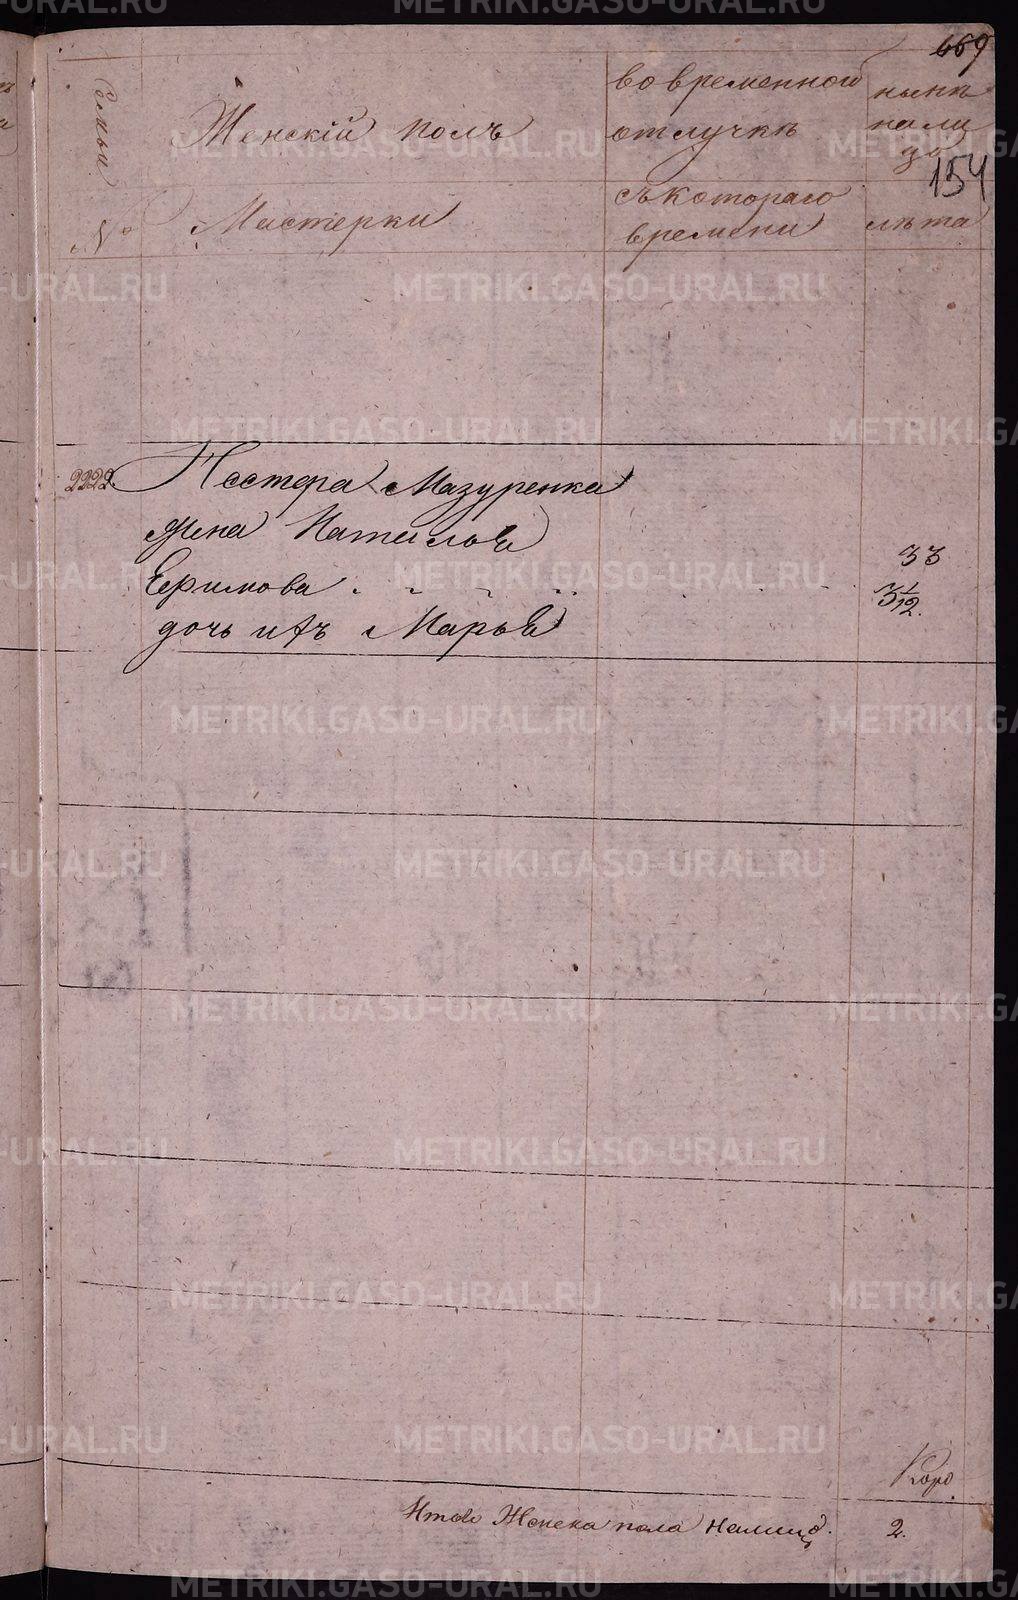 669
154
Семьи
№
Женскій полъ
Мастерки
во временной
отлучкѣ
съ котораго
времени
нынѣ
нали
цо
лѣта
2222. Нестора Мазуренка
Жена
Ефимова
33
дочь ихъ Марья
3 1/12.
Итого Женска пола налицо. 2.
METRIKI.GASO-URAL.RU